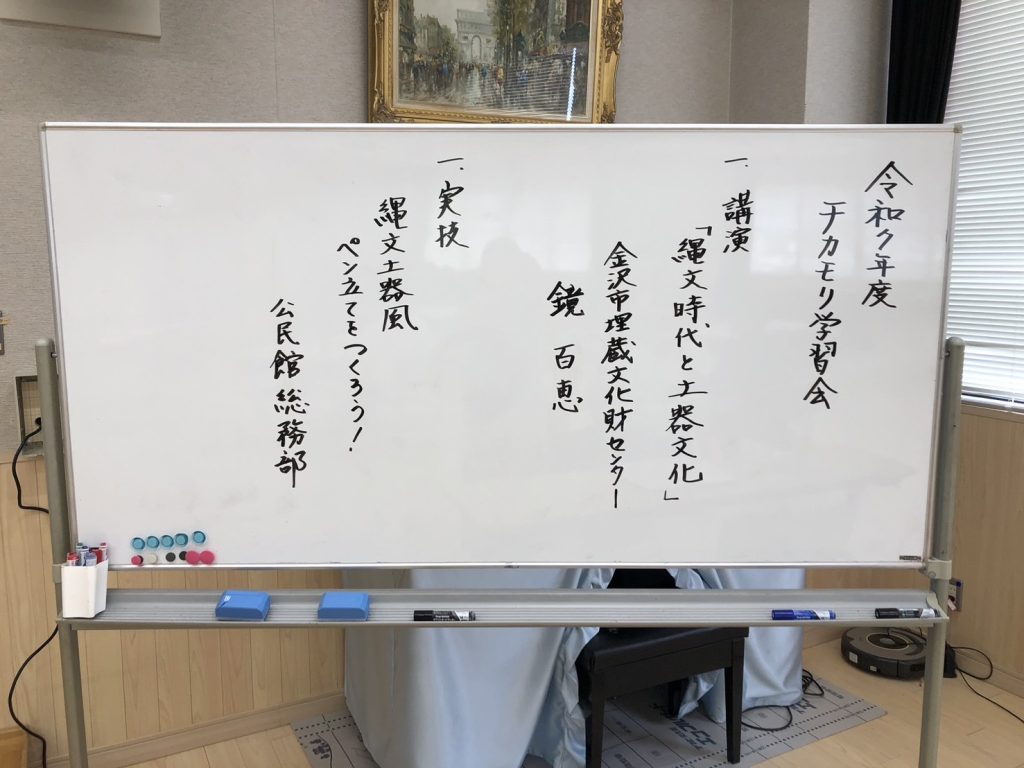 令和7年度
チカモリ学習会
一、講演
「縄文時代と土器文化」
金沢市埋蔵文化財センター
鏡 百恵
一、実技
縄文土器風
ペン立てをつくろう!
公民館総務部